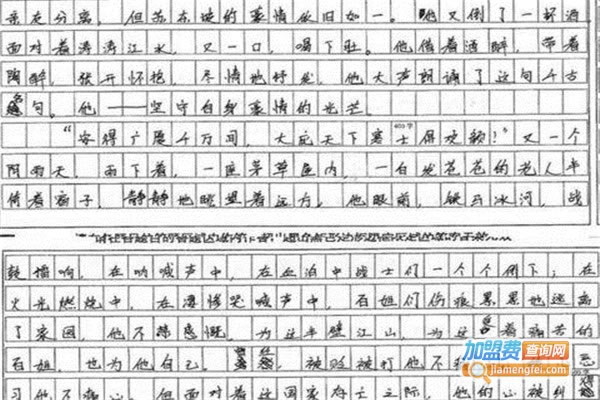 亲友分离。但苏东坡的豪情依旧如一。他又倒了一杯酒
面对着涛涛江水,又一口,喝下肚。他借着酒醉,带着
陶醉,张开怀抱,尽情地抒发,他大声朗诵了这句千古
名句。他——坚守自身豪情的光芒。
400字
“安得广厦千万间,大庇天下寒士俱欢颜!”又一个
阴雨天,雨下着,一座茅草屋内,一白发苍苍的老人半
倚着窗子,静静地眺望着远方,他眼前,铁马冰河,战
鼓播响,在呐喊声中,在血泊中战士们一个个倒下;在
火光燃烧中,在凄惨哭喊声中,百姓们伤痕累累地逃离
了家园,他不禁感慨,为这半壁江山,为这着痛苦的
百姓,也为他自己。被贬被打他不
习他不痛心,但面对着这国家存亡之际,他的心被纠
加盟费查询网
jiamengfei.com